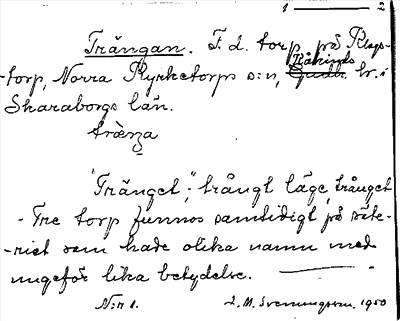 1 — 2
Trängan. F. d. torp på Klags-
Kåkinds
-torp, Norra Kyrketorps s:n, Gudh. hr. i
Skaraborgs län.
träŋa
"Tränget", trångt läge, trånget
- Tre torp funnos samtidigt på säte-
-riet som hade olika namn med
ungefär lika betydelse.
N:r 1. L. M. Svenungsson. 1950